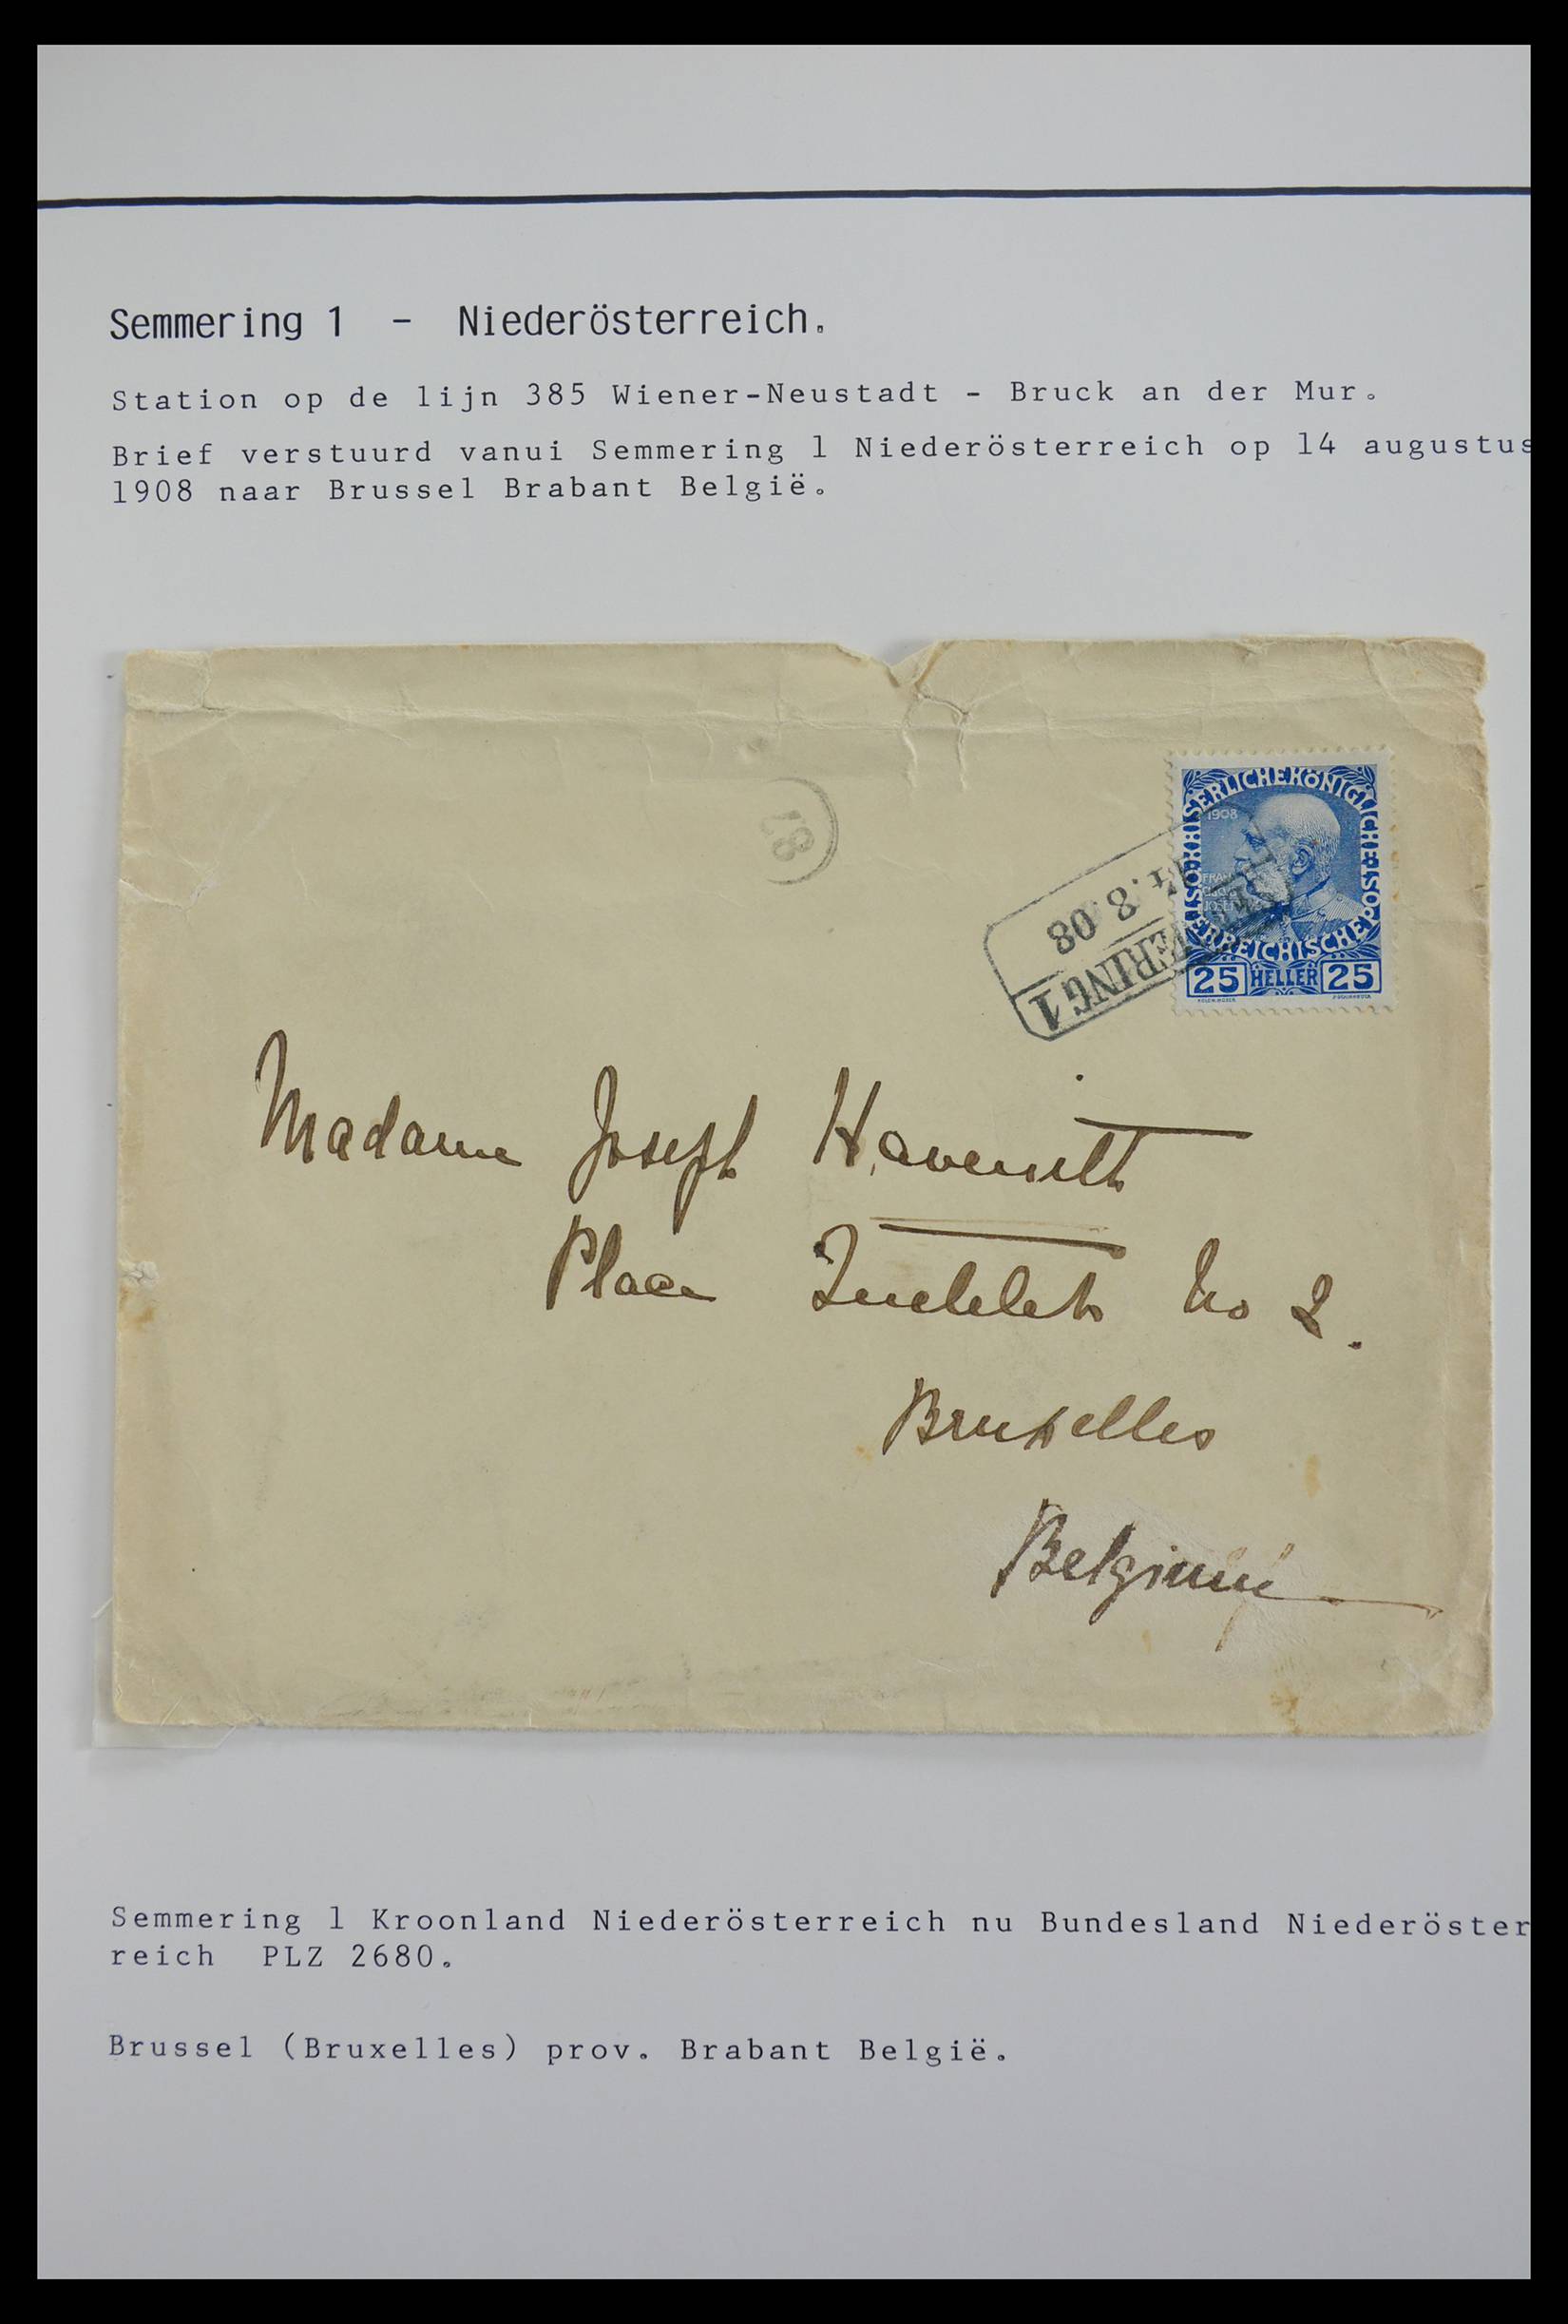 Semmering 1 - Niederösterreich.
Station op de lijn 385 Wiener-Neustadt - Bruck an der Mur.
Brief verstuurd vanui Semmering 1 Niederösterreich op 14 augustus
1908 naar Brussel Brabant België.
KAISERLICHEKÖNIGLICHE ÖSTERREICHISCHE POST
1908
FRANZ
JOSEF
25 HELLER 25
14.8.08
SEMMERING 1
87
Madame Joseph
Place No 2.
Bruxelles
Belgium
Semmering 1 Kroonland Niederösterreich nu Bundesland Niederöster
reich PLZ 2680.
Brussel (Bruxelles) prov. Brabant België.